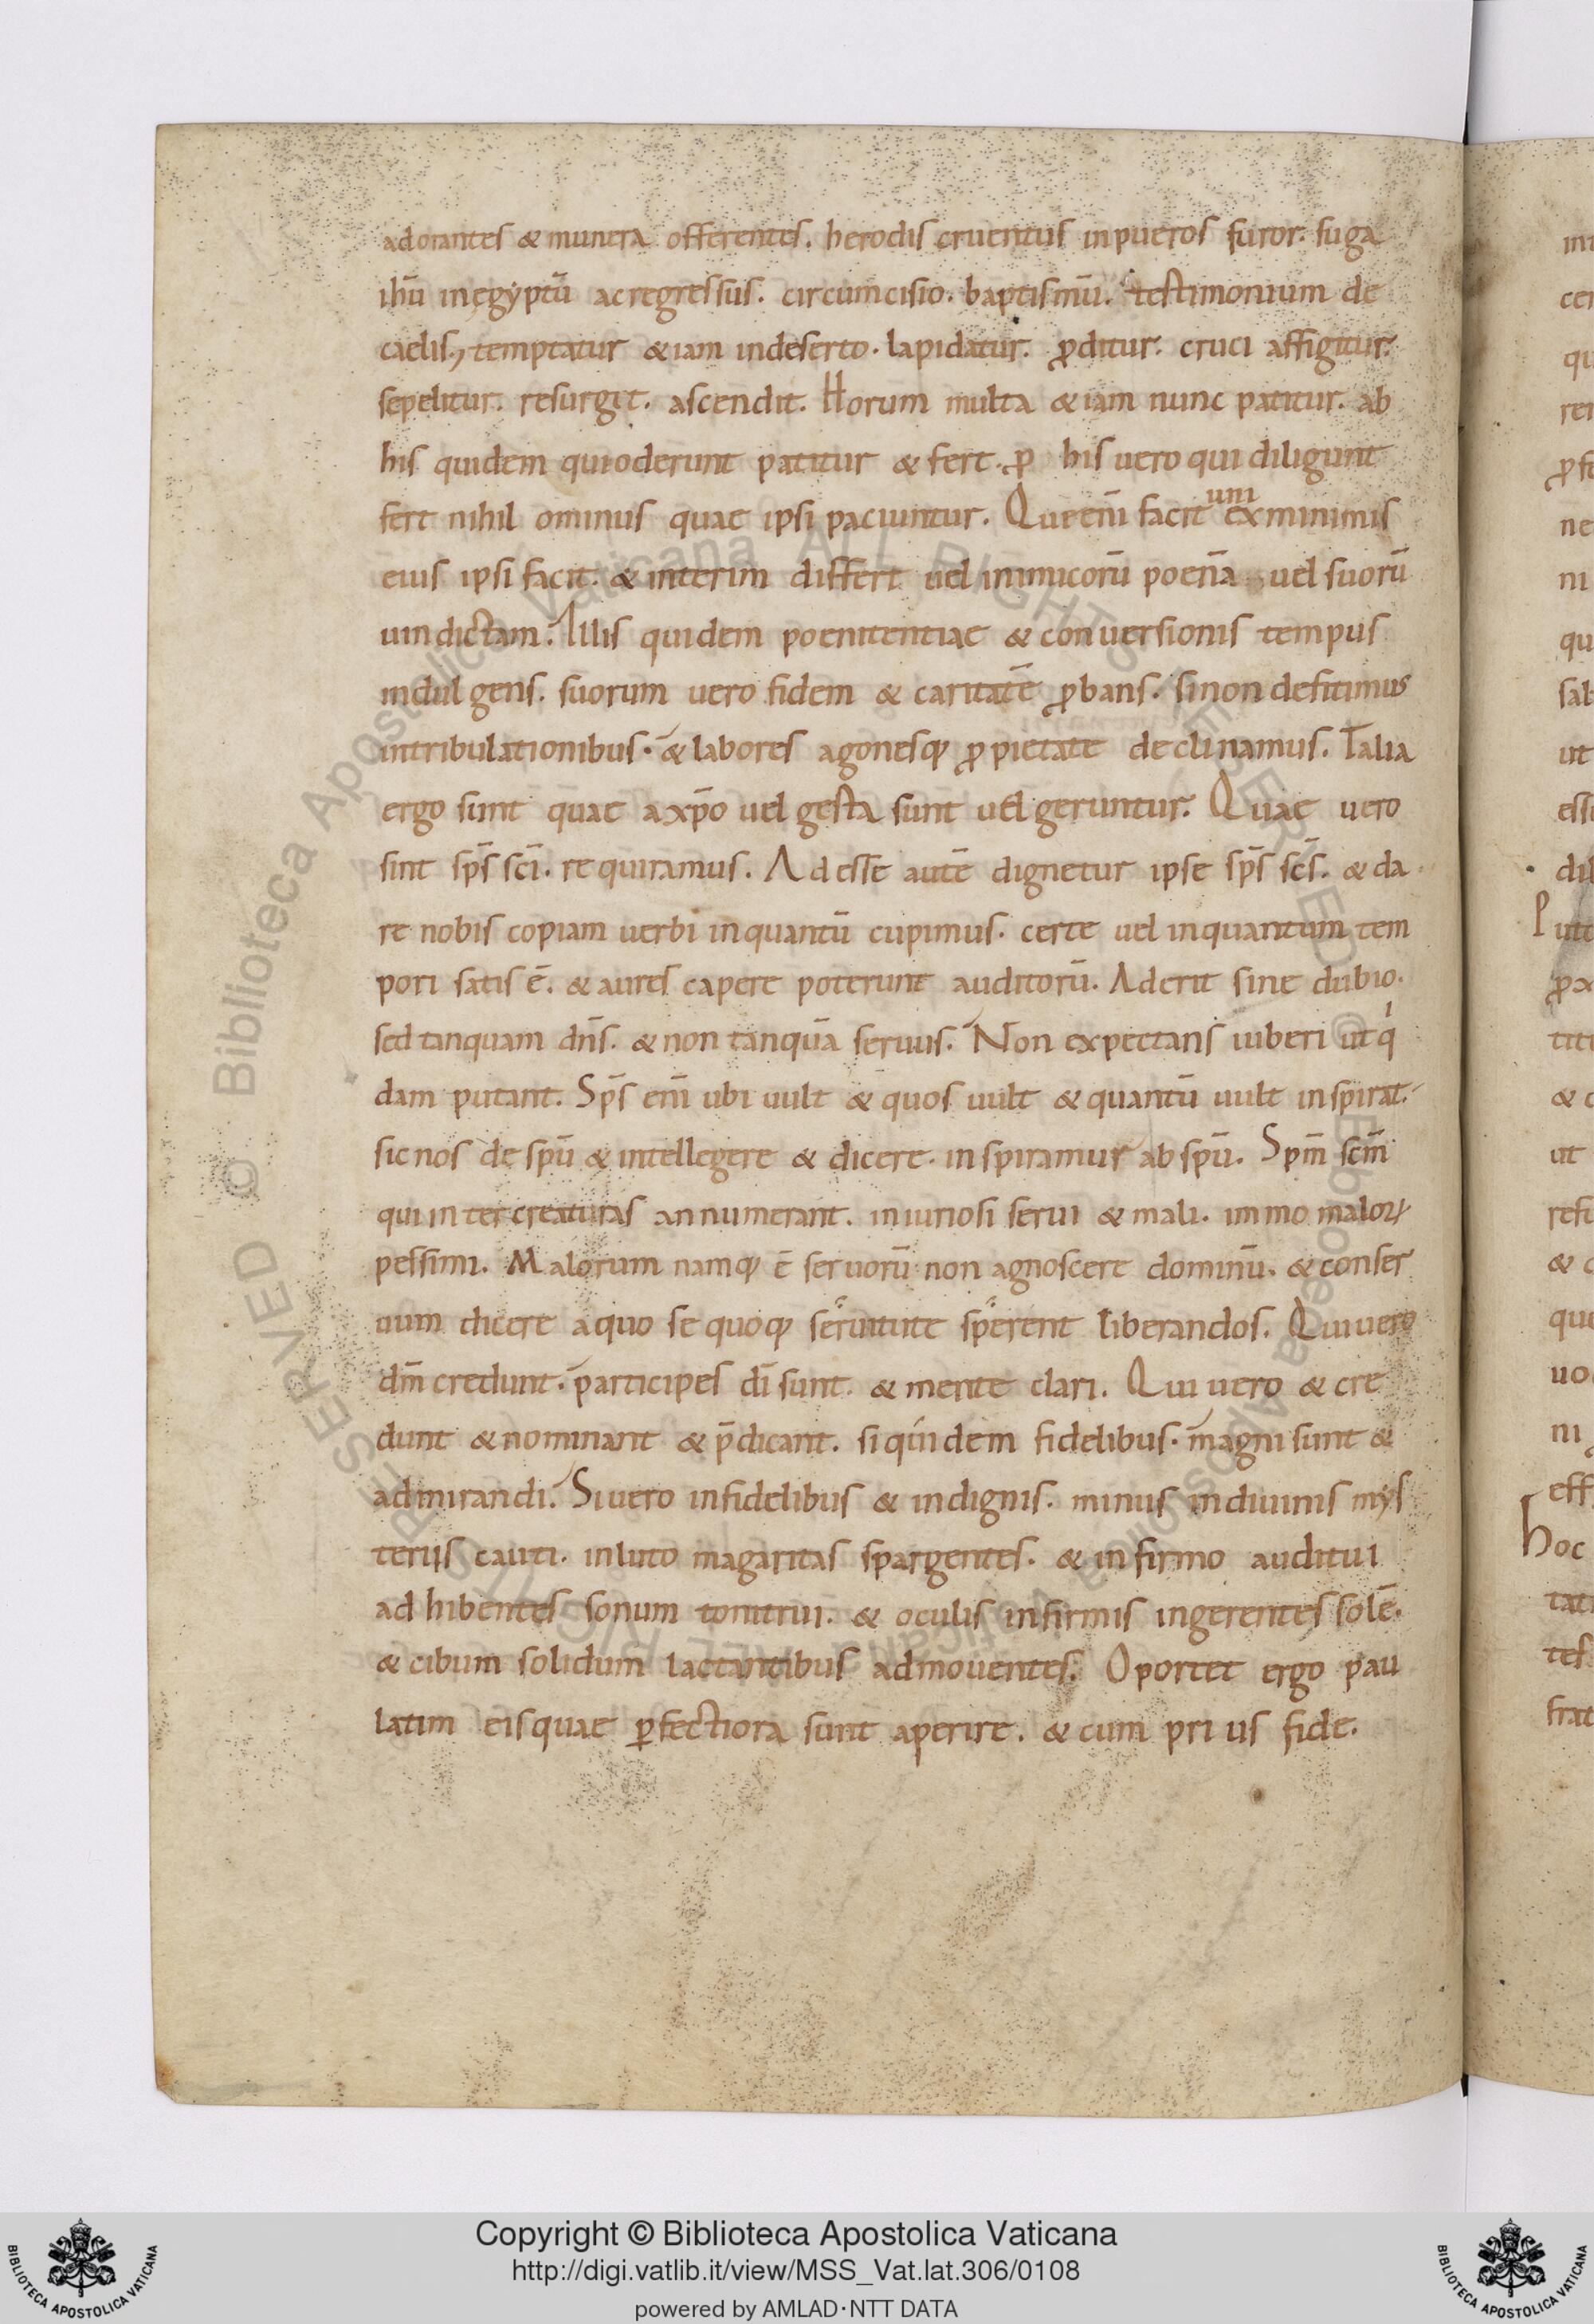 adorantes & munera offerentes. herodis cruentus inpueros furor. fuga
ihū inegyptū acregressus. circumcisio. baptismū. testimonium de
caelis, temptatur &iam indeserto. lapidatur. ꝓditur. cruci affigitur.
sepelitur. resurgit. ascendit. Horum multa &iam nunc patitur. ab
his quidem quioderunt patitur & fert. ꝓ his uero qui diligunt
fert nihil ominus quae ipsi paciuntur. Qui enī facit uni exminimis
eius ipsi facit. & interim differt uel inimicorū poenā uel suorū
uindictam. Illis quidem poenitentiae & conuersionis tempus
indulgens. suorum uero fidem & caritatē ꝓbans. sinon defitimus
intribulationibus. & labores agonesq; ꝓ pietate declinamus. Talia
ergo sunt quae axp̄o uel gesta sunt uel geruntur. Quae uero
sint sp̄s sc̄i. requiramus. Adesse autē dignetur ipse sp̄s sc̄s. & da
re nobis copiam uerbi inquantū cupimus. certe uel inquantum tem
pori satis ē. & aures capere poterunt auditorū. Aderit sine dubio.
sed tanquam dn̄s. & non tanquā seruus. Non expectans iuberi ut qͥ
dam putant. Sp̄s enī ubi uult & quos uult & quantū uult inspirat.
sic nos de spū & intellegere & dicere. inspiramur ab spū. Spm̄ scm̄
qui inter creaturas annumerant. iniuriosi serui & mali. immo maloꝝ
pessimi. Malorum namq; ē seruorū non agnoscere dominū. & conser
uum dicere aquo se quoq; seruitute sperent liberandos. Qui uero
dm̄ credunt. participes dī sunt. & mente clari. Qui uero & cre
dunt & nominant & p̄dicant. siquidem fidelibus. magni sunt &
admirandi. Siuero infidelibus & indignis. minus indiuinis mys
teriis cauti. inluto magaritas spargentes. & infirmo auditui
adhibentes sonum tonitrui. & oculis infirmis ingerentes solē.
& cibum solidum lactantibus admouentes. Oportet ergo pau
latim eisquae ꝑfectiora sunt aperire. & cum prius fide.
Copyright © Biblioteca Apostolica Vaticana
http://digi.vatlib.it/view/MSS_Vat.lat.306/0108
powered by AMLAD·NTT DATA